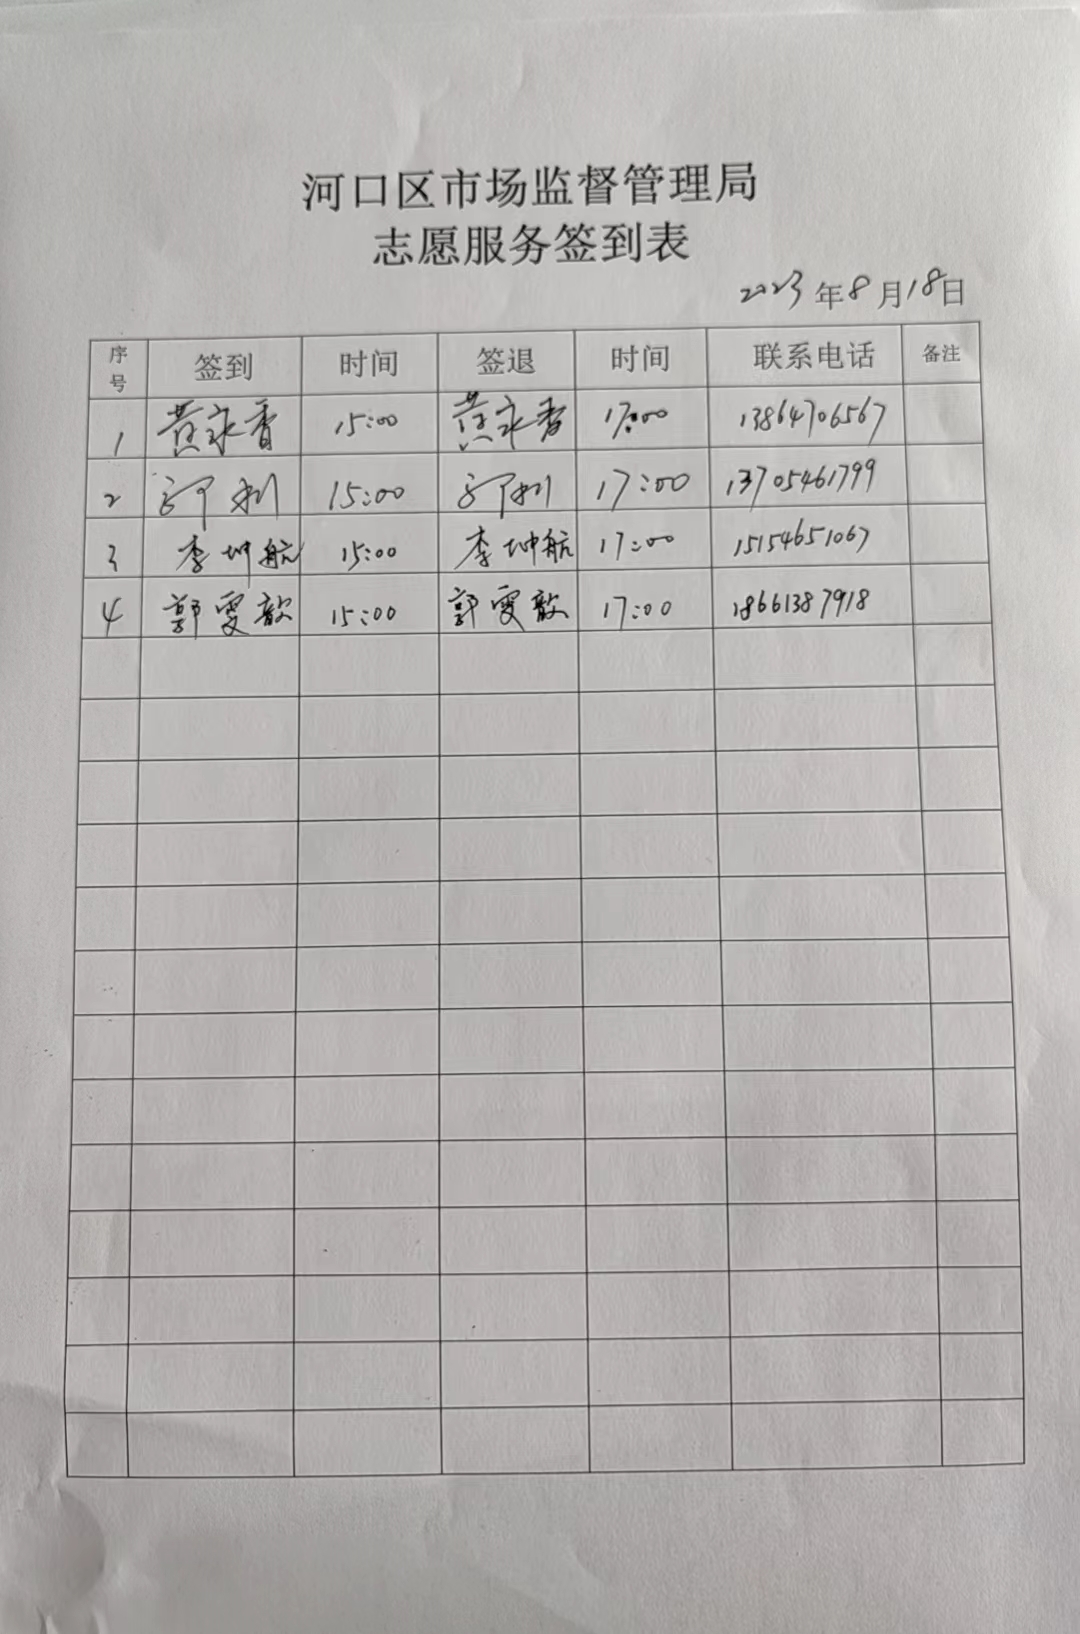 河口区市场监督管理局
志愿服务签到表
2023年8月18日
序号 签到 时间 签退 时间 联系电话 备注
1 黄永香 15:00 黄永香 17:00 13864706567
2 利 15:00 利 17:00 13705461799
3 李坤航 15:00 李坤航 17:00 15154651067
4 郭雯歆 15:00 郭雯歆 17:00 18661387918